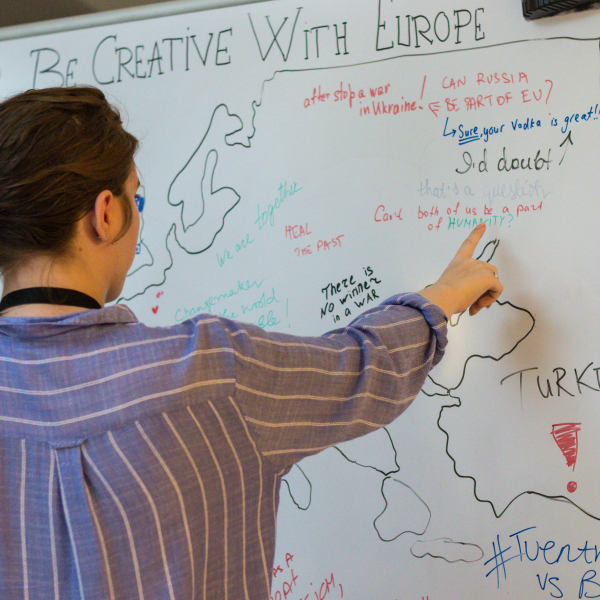 BE CREATIVE WITH EUROPE
after stop a war
in Ukraine!
CAN RUSSIA
BE PART OF EU?
Sure, your Vodka is great!!
I'd doubt
that's a question
Can both of us be a part
of HUMANITY?
we are together
HEAL
THE PAST
There is
NO winner
in a WAR
Changemaker
the world
!
TURK
#Tuent
vs B